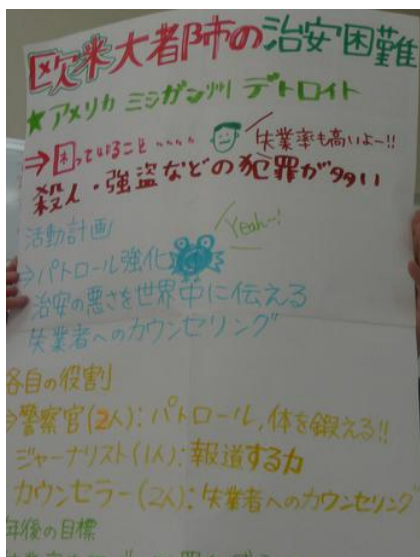 欧米大都市の治安困難
★アメリカ ミシガン州 デトロイト
⇒困っていること‥‥‥
失業率も高いよー!!
殺人・強盗などの犯罪が多い
活動計画
Yeah~!
⇒パトロール強化
治安の悪さを世界中に伝える
失業者へのカウンセリング
各自の役割
⇒警察官(2人):パトロール,体を鍛える!!
ジャーナリスト(1人):報道する力
カウンセラー(2人):失業者へのカウンセリング
年後の目標